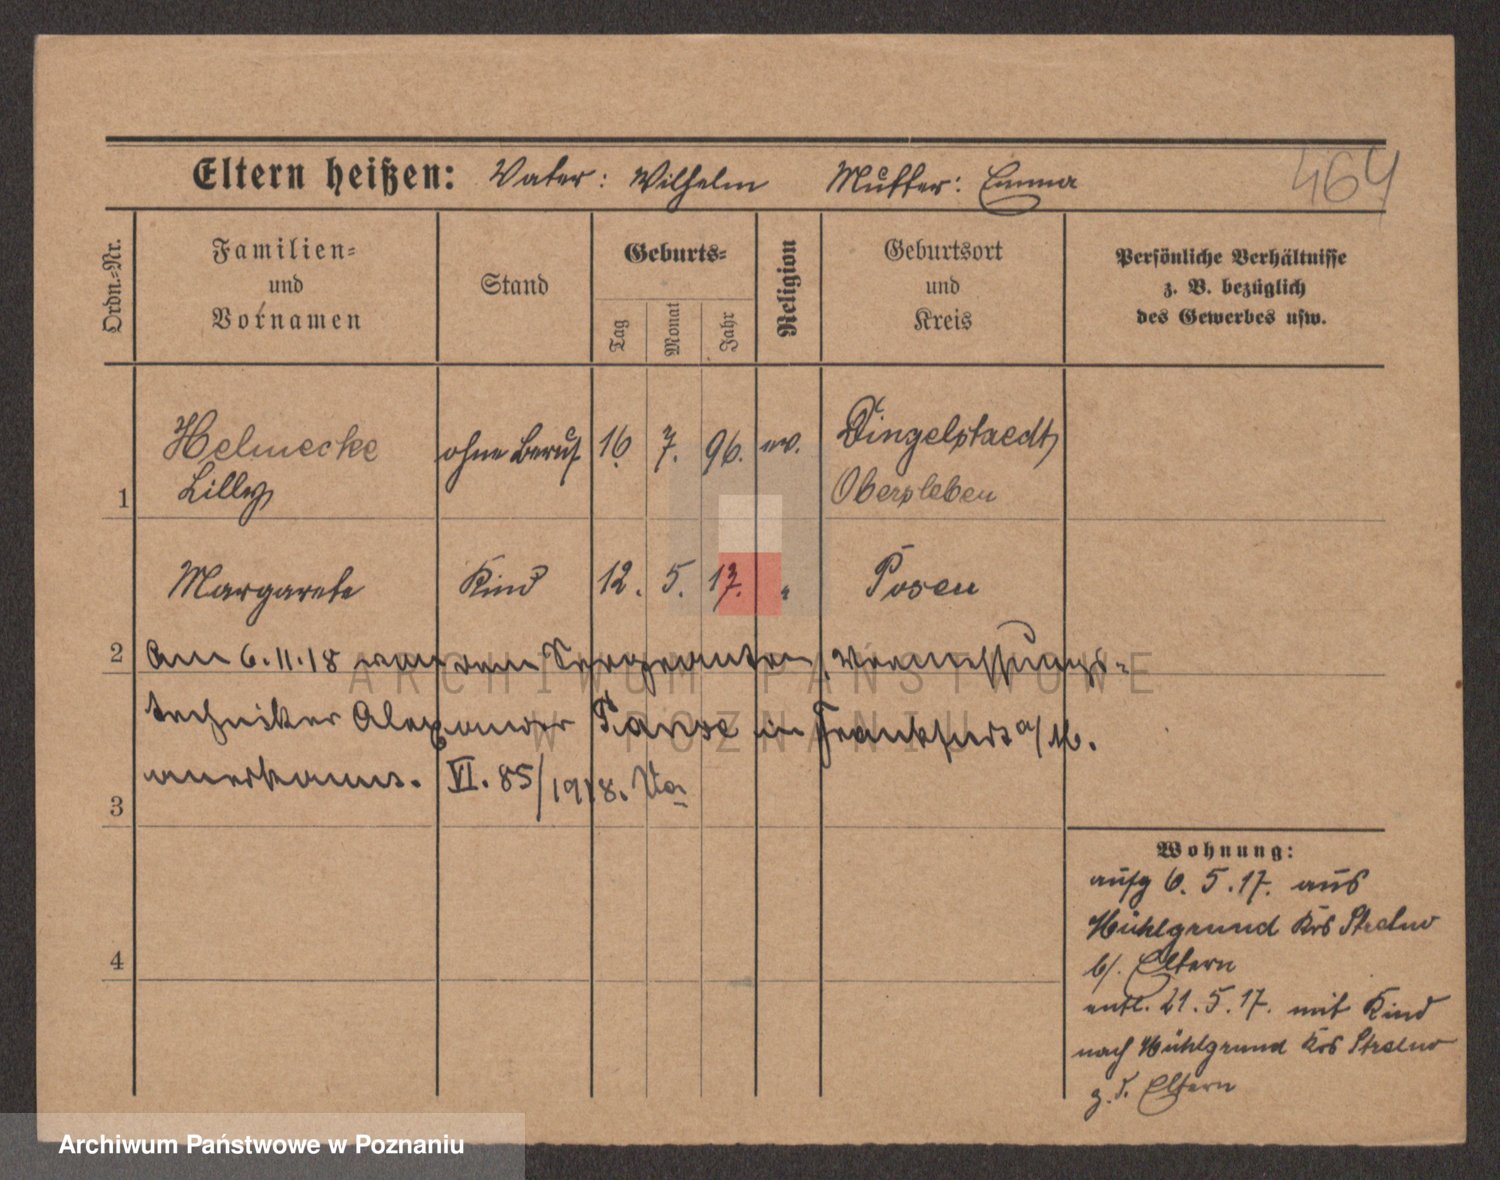 Eltern heißen: Vater: Wilhelm Mutter: Emma
464
Ordn.-Nr.
Familien-
und
Vornamen
Stand
Geburts-
Tag
Monat
Jahr
Religion
Geburtsort
und
Kreis
Persönliche Verhältnisse
z. B. bezüglich
des Gewerbes usw.
Helmecke ohne Beruf 16. 7. 96. ev. Dingelstaedt
1 Lilly
Margarete Kind 12. 5. 17. " Posen
2 Am 6.11.18 von dem Sergeanten, Vermessungs-
techniker Alexander in Frankfurt a/M.
3 anerkannt. VI. 85/1918.
4
Wohnung:
aufg 6. 5. 17. aus
Mühlgrund Krs Strelno
b/. Eltern
entl. 21. 5. 17. mit Kind
nach Mühlgrund Krs Strelno
z. d. Eltern
ARCHIWUM PAŃSTWOWE
W POZNANIU
Archiwum Państwowe w Poznaniu